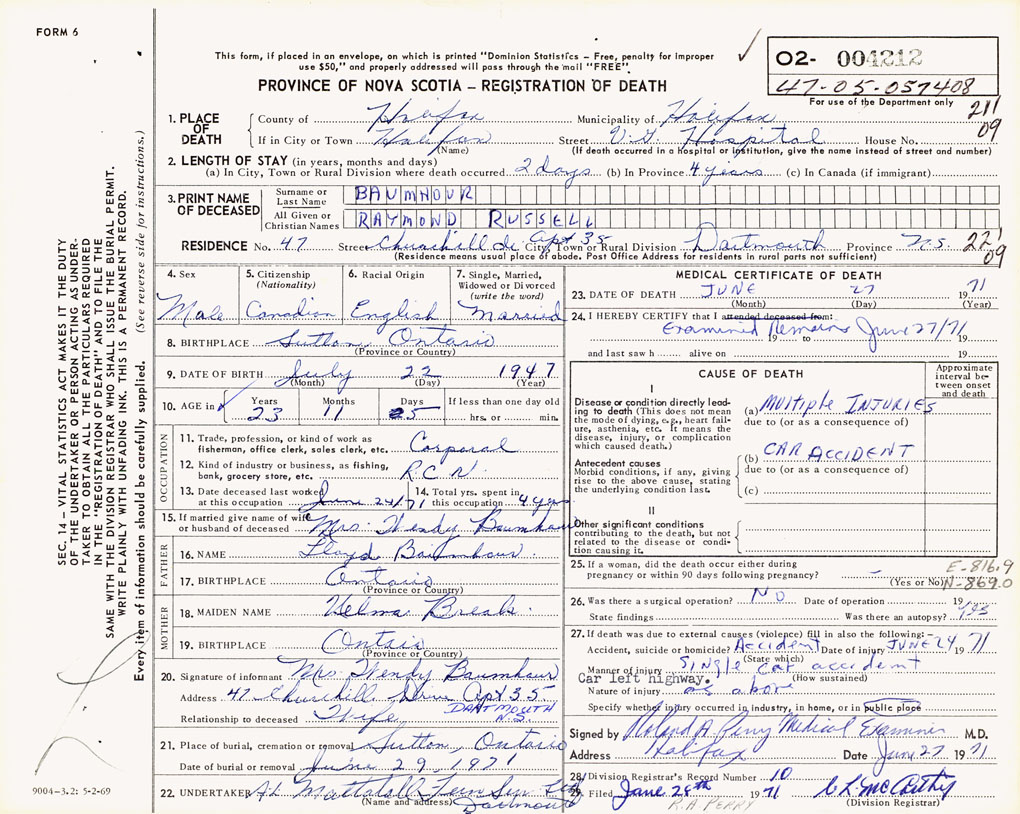 FORM 6
This form, if placed in an envelope, on which is printed "Dominion Statistics - Free, penalty for improper
use $50," and properly addressed will pass through the mail "FREE".
PROVINCE OF NOVA SCOTIA - REGISTRATION OF DEATH
02- 004212
47-05-057408
For use of the Department only
211
09
1. PLACE OF DEATH County of Halifax Municipality of Halifax
If in City or Town Halifax Street V.G. Hospital House No.
(Name) (If death occurred in a hospital or institution, give the name instead of street and number)
2. LENGTH OF STAY (in years, months and days)
(a) In City, Town or Rural Division where death occurred 2 days (b) In Province 4 years (c) In Canada (if immigrant)
3. PRINT NAME OF DECEASED Surname or Last Name BAUMHOUR
All Given or Christian Names RAYMOND RUSSELL
RESIDENCE No. 47 Street Churchill dr Apt 35 City, Town or Rural Division Dartmouth Province N.S. 221
09
(Residence means usual place of abode. Post Office Address for residents in rural parts not sufficient)
4. Sex Male
5. Citizenship (Nationality) Canadian
6. Racial Origin English
7. Single, Married, Widowed or Divorced (write the word) Married
8. BIRTHPLACE Sutton Ontario
(Province or Country)
9. DATE OF BIRTH July 22 1947
(Month) (Day) (Year)
10. AGE in Years 23 Months 11 Days 5 If less than one day old hrs. or min.
OCCUPATION
11. Trade, profession, or kind of work as fisherman, office clerk, sales clerk, etc. Corporal
12. Kind of industry or business, as fishing, bank, grocery store, etc. R.C.N.
13. Date deceased last worked at this occupation June 24/71
14. Total yrs. spent in this occupation 4 yrs.
15. If married give name of wife or husband of deceased Mrs. Wendy Baumhour
FATHER
16. NAME Lloyd Baumhour
17. BIRTHPLACE Ontario
(Province or Country)
MOTHER
18. MAIDEN NAME Velma
19. BIRTHPLACE Ontario
(Province or Country)
20. Signature of informant Mrs Wendy Baumhour
Address 47 Churchill Drive Apt 35
DARTMOUTH N.S.
Relationship to deceased Wife
21. Place of burial, cremation or removal Sutton, Ontario
Date of burial or removal June 29, 1971
22. UNDERTAKER
(Name and address) Dartmouth
MEDICAL CERTIFICATE OF DEATH
23. DATE OF DEATH JUNE 27 1971
(Month) (Day) (Year)
24. I HEREBY CERTIFY that I attended deceased from:
Examined Remains June 27/71
19 to 19
and last saw h alive on 19
CAUSE OF DEATH
Approximate interval between onset and death
I
Disease or condition directly leading to death (This does not mean the mode of dying, e.g., heart failure, asthenia, etc. It means the disease, injury, or complication which caused death.
(a) MULTIPLE INJURIES
due to (or as a consequence of)
Antecedent causes
Morbid conditions, if any, giving rise to the above cause, stating the underlying condition last.
(b) CAR ACCIDENT
due to (or as a consequence of)
(c)
II
Other significant conditions contributing to the death, but not related to the disease or condition causing it.
25. If a woman, did the death occur either during pregnancy or within 90 days following pregnancy? -
(Yes or No)
E-816.9
N-869.0
26. Was there a surgical operation? NO Date of operation 19
State findings Was there an autopsy?
27. If death was due to external causes (violence) fill in also the following:-
Accident, suicide or homicide? Accident Date of injury JUNE 24 1971
(State which)
Manner of injury Single car accident
(How sustained)
Car left highway.
Nature of injury as above
Specify whether injury occurred in industry, in home, or in public place
Signed by Roland A Perry Medical Examiner M.D.
Address Halifax Date June 27 1971
28. Division Registrar's Record Number 10
29. Filed June 28th 1971 C L McCarthy
(Division Registrar)
R.A. PERRY
SEC. 14 - VITAL STATISTICS ACT MAKES IT THE DUTY
OF THE UNDERTAKER OR PERSON ACTING AS UNDERTAKER
TO OBTAIN ALL THE PARTICULARS REQUIRED
IN THE "REGISTRATION OF DEATH" AND TO FILE THE
SAME WITH THE DIVISION REGISTRAR WHO SHALL ISSUE THE BURIAL PERMIT.
WRITE PLAINLY WITH UNFADING INK. THIS IS A PERMANENT RECORD.
Every item of information should be carefully supplied. (See reverse side for instructions.)
9004-3.2: 5-2-69